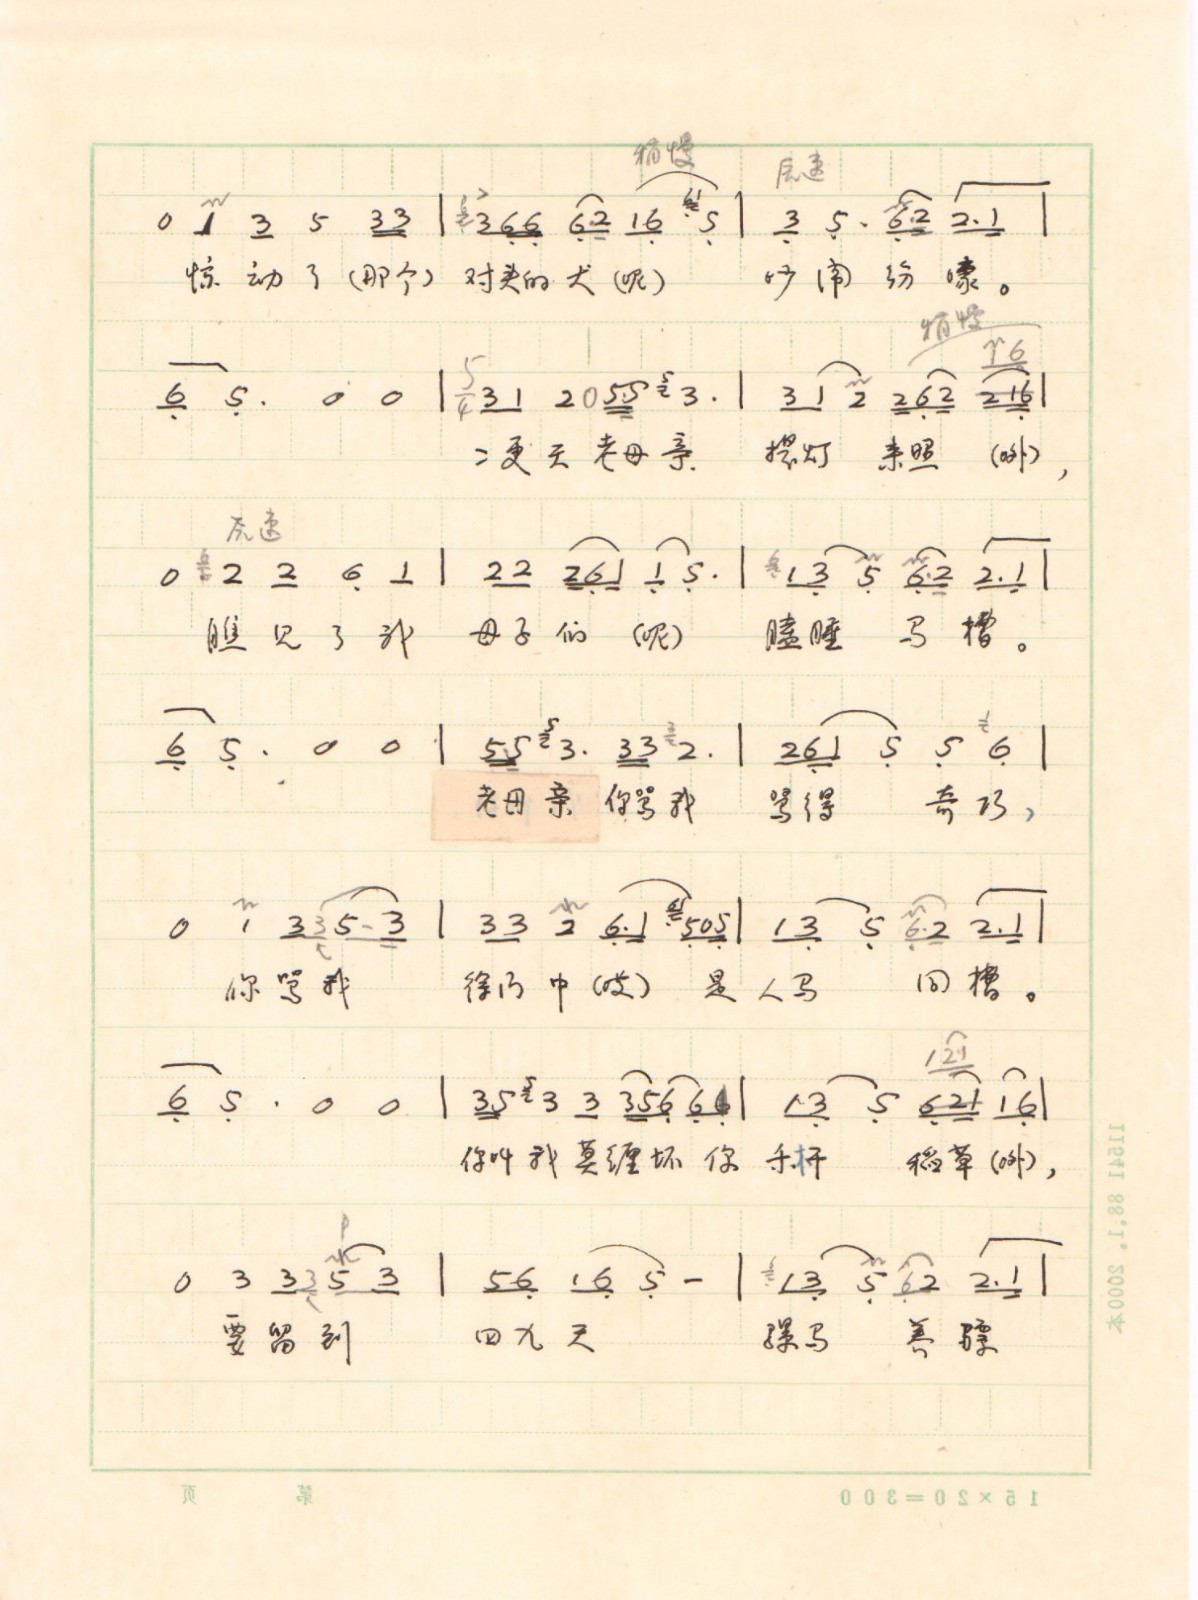 稍慢 原速
0 1 3 5 33 | 366 6·2 16 5 | 3 5· 6·2 2·1 |
惊动了(那个) 对头的犬(呢) 吵闹纷嚎。
稍慢
16
6 5· 0 0 | 5/4 31 2 0 55 3· | 31 2 262 216 |
二更天老母亲 提灯来照(哟),
原速
0 2 2 6 1 | 22 261 1 5· | 13 5 6·2 2·1 |
瞧见了我 母子们(呢) 瞌睡马槽。
6 5· 0 0 | 55 3· 33 2· | 261 5 5 6 |
老母亲你骂我 骂得奇巧,
0 1 3 3 5-3 | 33 2 6·1 505 | 13 5 6·2 2·1 |
你骂我 中(哎)是人马同槽。
121
6 5· 0 0 | 35 3 3 356 66 | 13 5 621 16 |
你叫我莫缠坏你 稻草(哟),
p
0 3 3 3 5 3 | 56 16 5 - | 13 5 62 2·1 |
要留到 四九天 骡马养膘
11541 88.1. 2000本
第 页 15×20=300